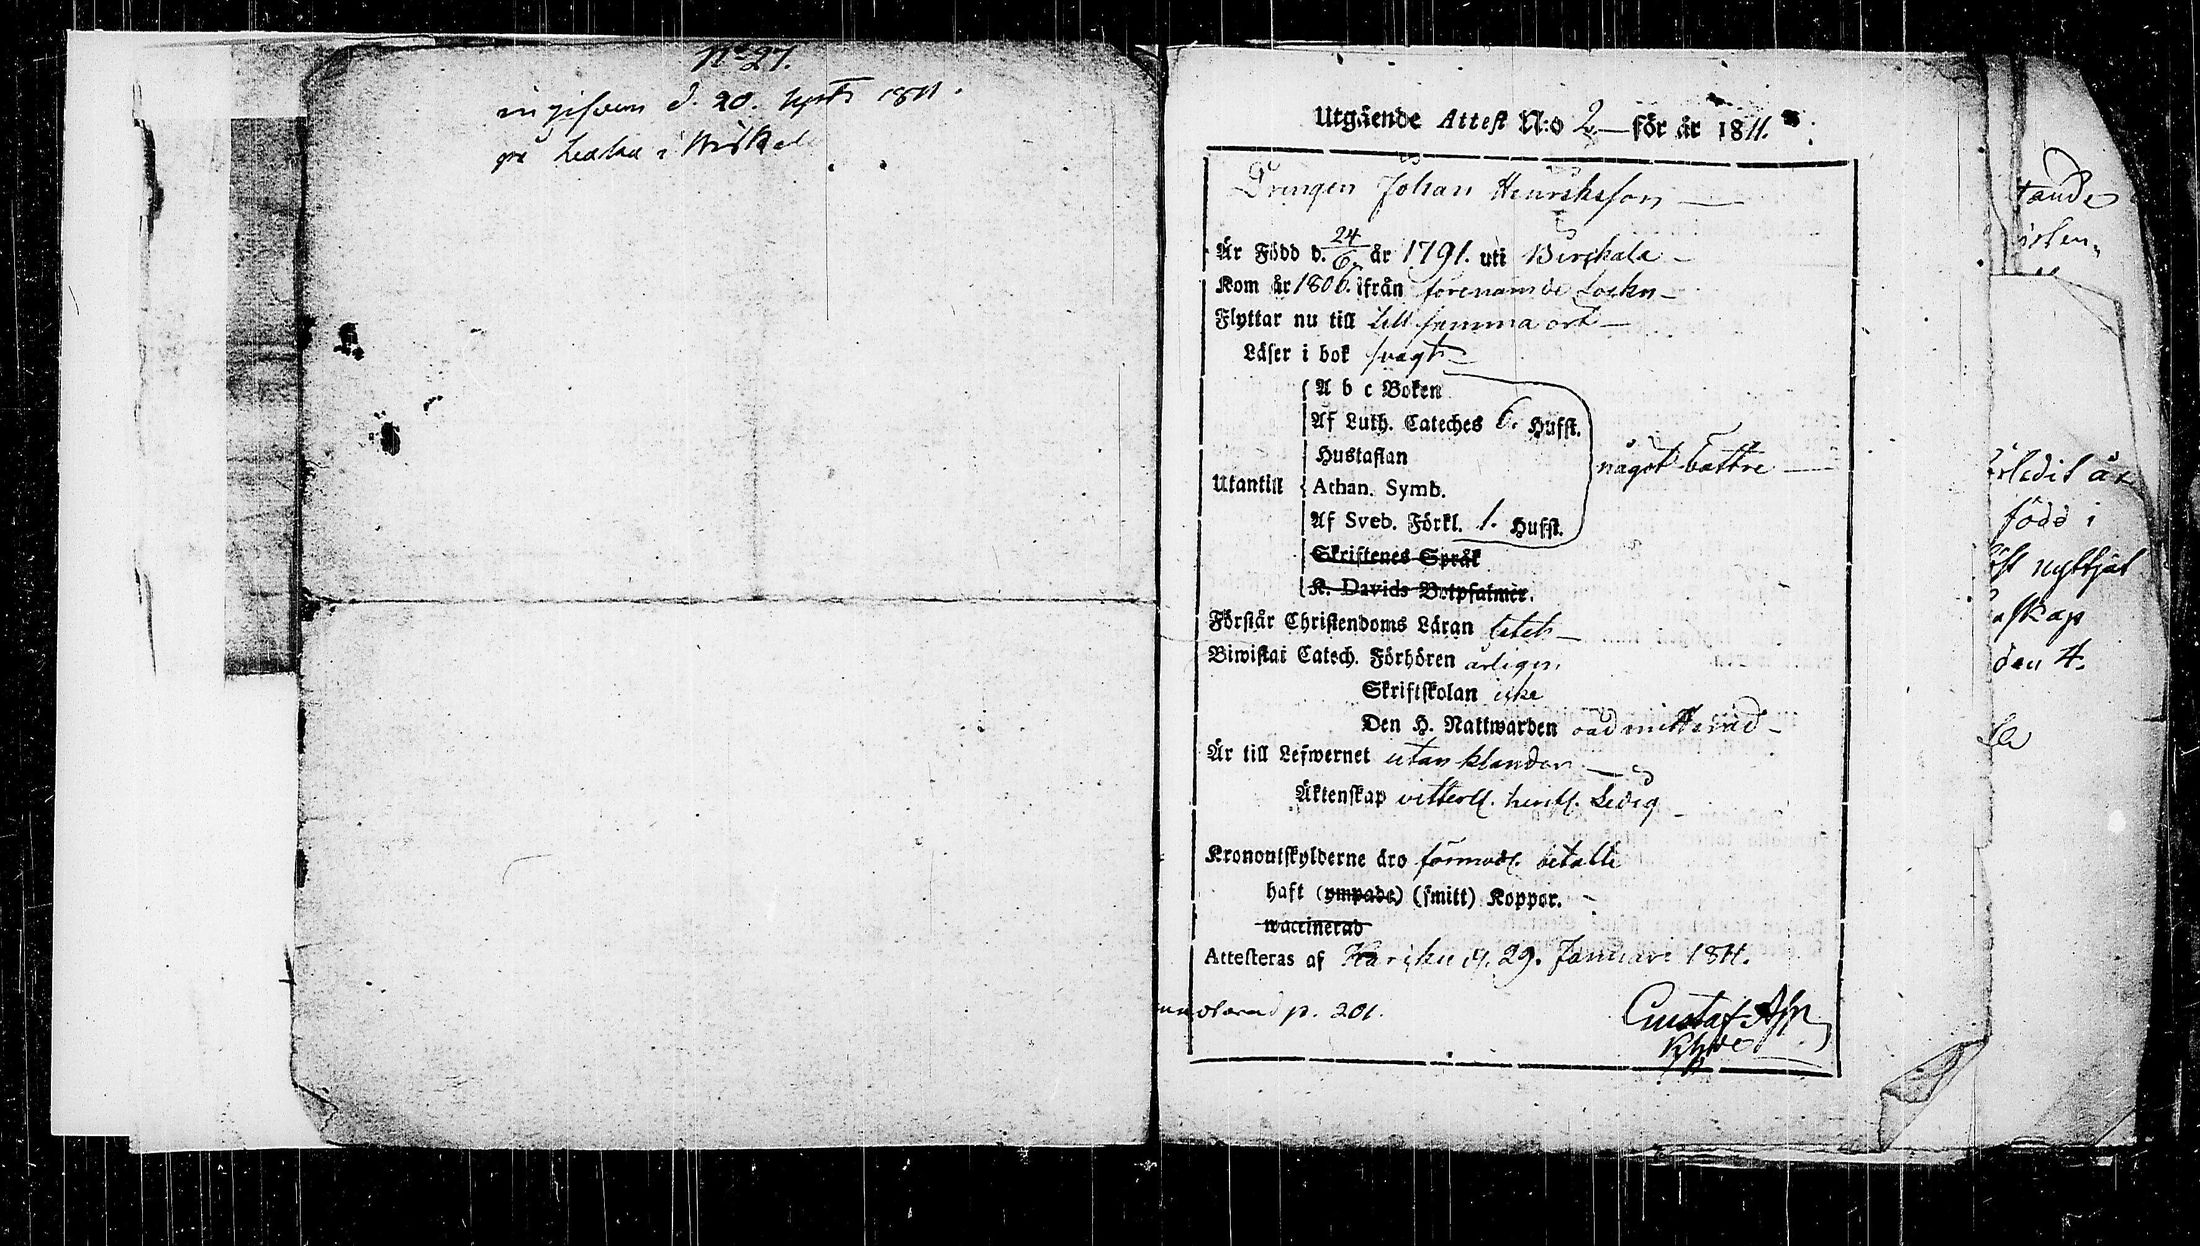 No 27.
d. 20. Sept. 1811.
på i
Utgående Attest N:o 2 för år 1811.
Drengen Johan Henriksson
Är Född d. 24/6 år 1791. uti Birckala
Kom år 1806. ifrån förenämde Sockn
Flyttar nu till till samma ort
Läser i bok svagt
A b c Boken
Af Luth. Cateches 6. Hufst.
Hustaflan
något bättre
Utantill
Athan. Symb.
Af Sveb. Förkl. 1. Hufst.
Skriftenes Språk
K. Davids Botpsalmer.
Förstår Christendoms Läran litet
Biwistat Catech. Förhören årligen
Skriftskolan icke
Den H. Nattwarden oadmitterad
Är till Lefwernet utan klander
Äktenskap vitterl. hinderl. Ledig
Kronoutskylderne äro förmodl. betalte
haft (ympade) (smitt) Koppor.
waccinerad
Attesteras af d. 29. Januari 1811.
p. 201.
Gustaf
tande
född i
nyttjat
den 4.